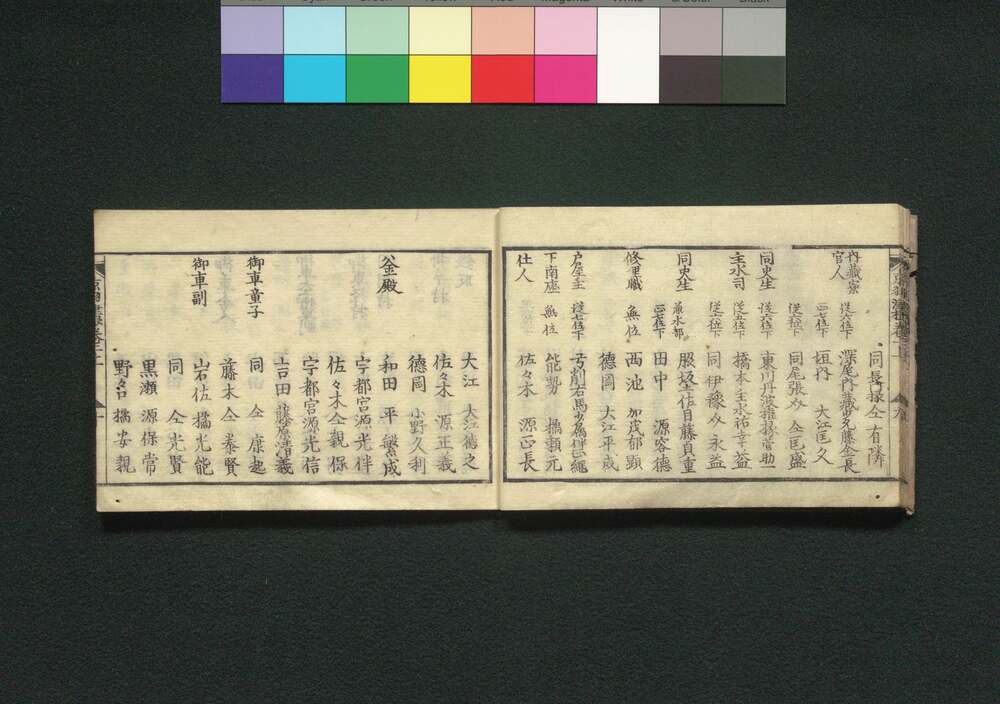 同長掾仝有隣
内蔵寮
官人
従六位下
深尾内蔵少允藤仝長
正七位下
垣内 大江匡久
従六位下
同尾張介 仝匡盛
同史生
従六位下
東川丹波権掾菅助一
主水司
従五位下
橋本主水祐幸益
従六位下
同伊豫介永益
同史生
兼水部
服坂土佐目藤貞重
正七位下
田中 源容徳
修理職
無位
西池 加茂郁顕
徳岡 大江平成
戸屋主
従七位下
下南座
無位
能勢 橘頼元
仕人
佐々木 源正長
大江 大江徳之
佐々木 源正義
徳岡 小野久利
釜殿
和田 平繁成
宇都宮源光伴
佐々木仝親保
宇都宮源光信
吉田 藤原清義
御車童子
同 仝 康起
藤木 仝 泰賢
御車副
岩佐 橘光能
同 仝 光賢
黒瀬 源保常
野々口 橘安親